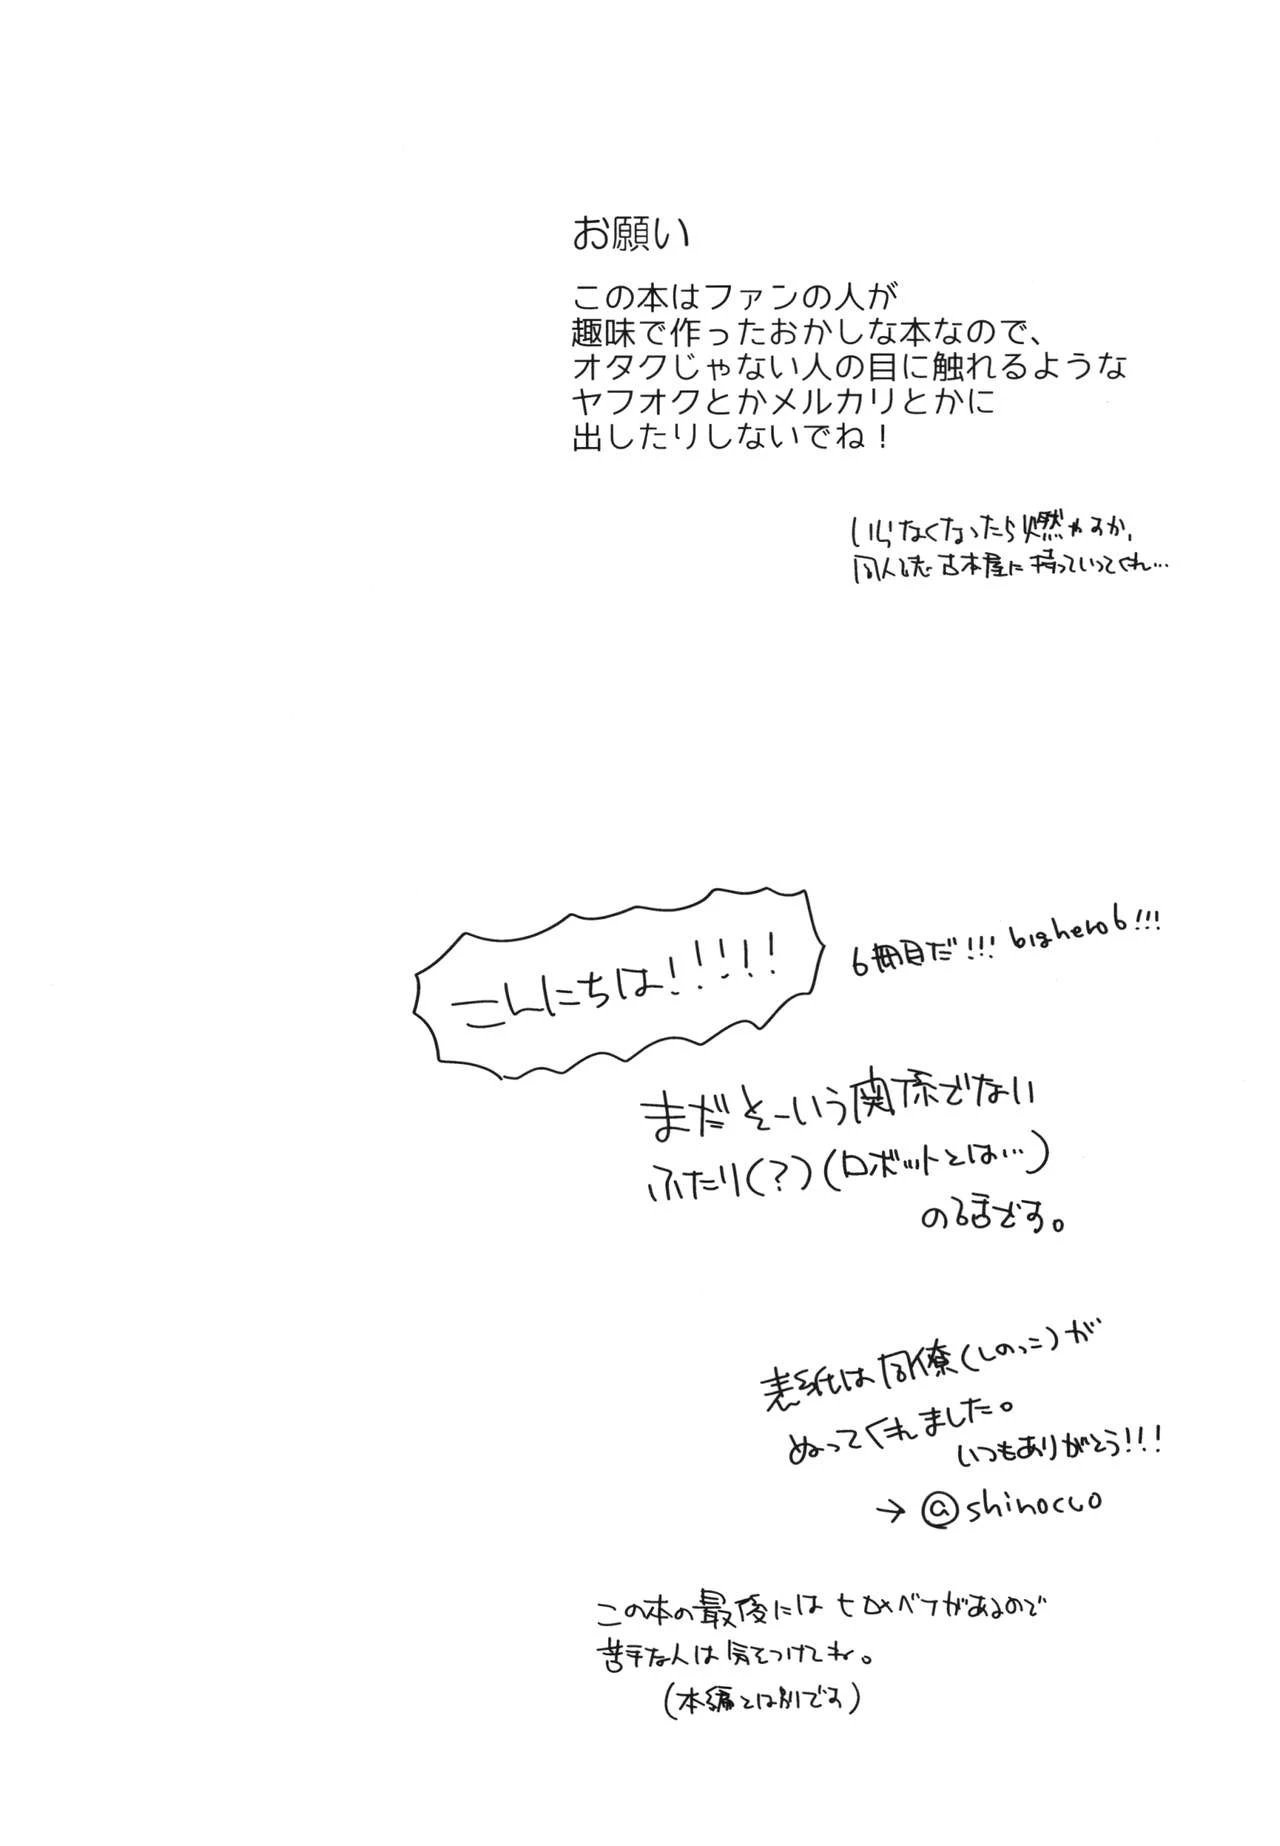 お願い
この本はファンの人が
趣味で作ったおかしな本なので、
オタクじゃない人の目に触れるような
ヤフオクとかメルカリとかに
出したりしないでね！
いらなくなったら燃やるか、
同人誌古本屋に持っていってくれ…
こんにちは！！！！！
6冊目だ!!! bighero6!!!
まだそーいう関係でない
ふたり(?)(ロボットとは…)
の話です。
表紙は同僚(しのっこ)が
ぬってくれました。
いつもありがとう!!!
→ @shinocco
この本の最後にはヒロ×ベフがあるので
苦手な人は気をつけてね。
(本編とは別です)